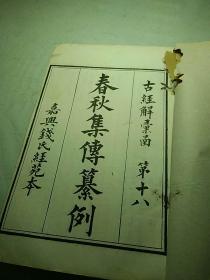 古經解彙函 第十八
春秋集傳纂例
嘉興錢氏經苑本